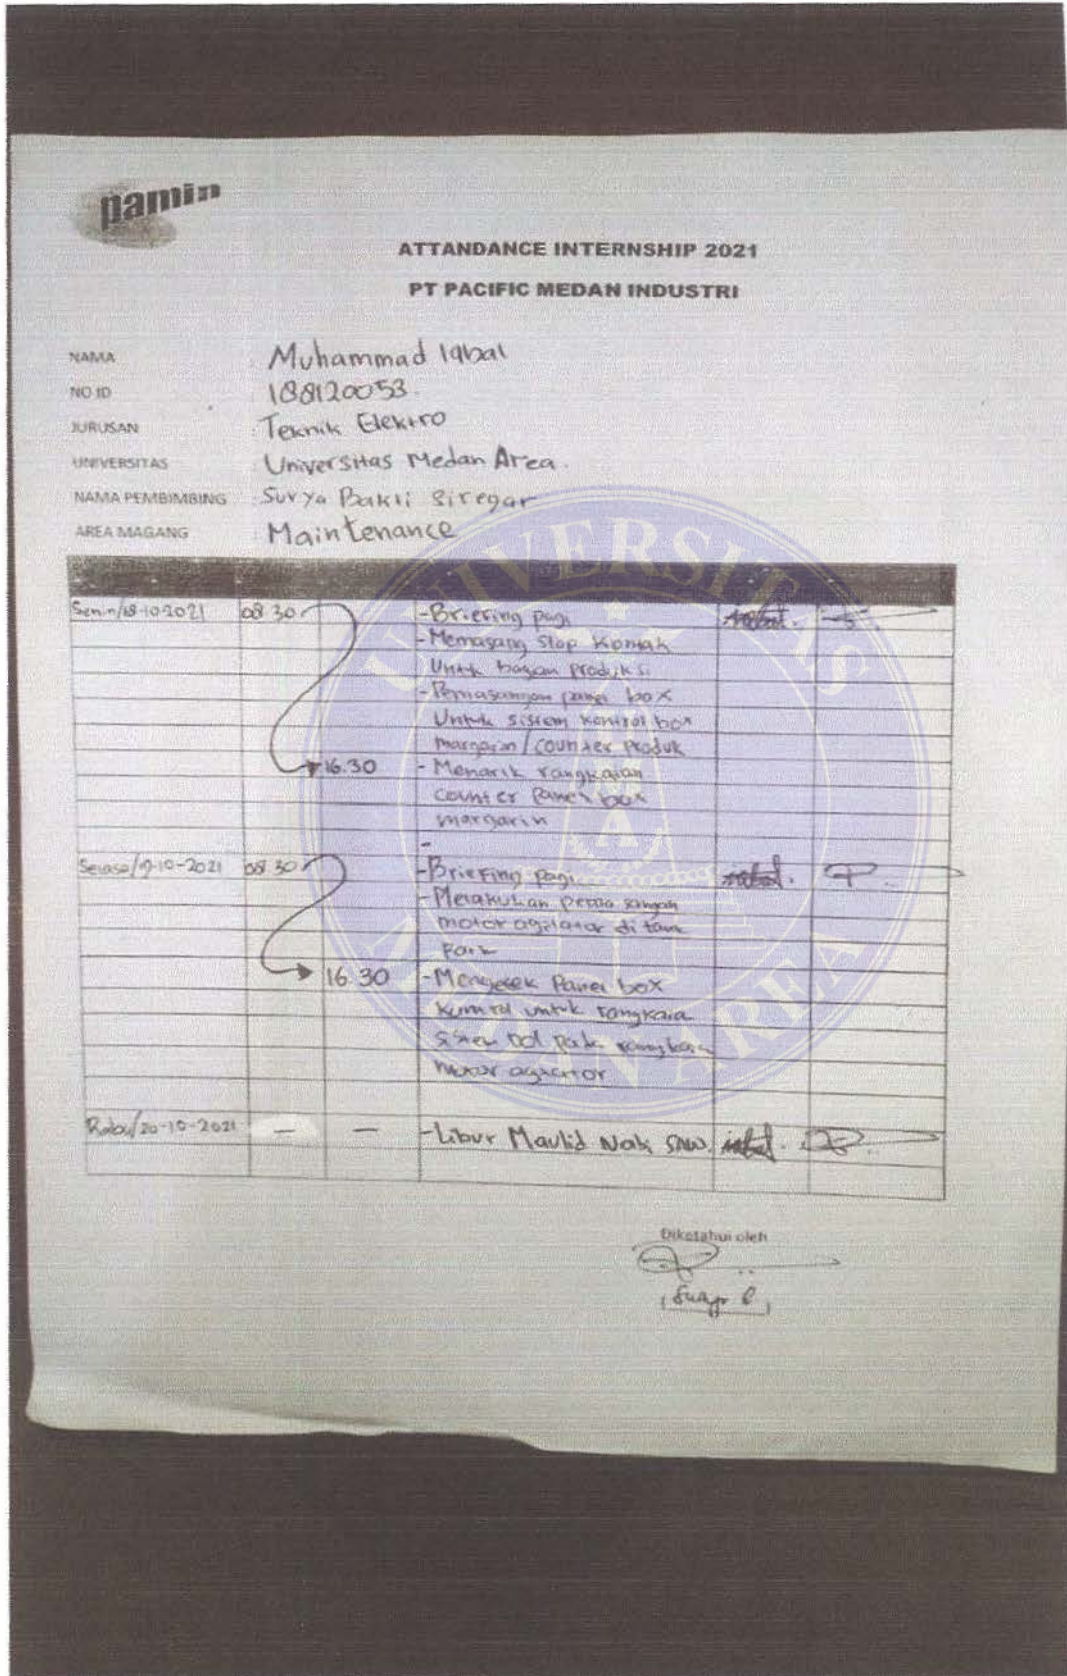 pamin
ATTANDANCE INTERNSHIP 2021
PT PACIFIC MEDAN INDUSTRI
NAMA : Muhammad Iqbal
NO ID : 188120053.
JURUSAN : Teknik Elektro
UNIVERSITAS : Universitas Medan Area.
NAMA PEMBIMBING : Surya Bakti Siregar
AREA MAGANG : Maintenance
Senin/18-10-2021 08 30 - Briefing pagi
- Memasang Stop Kontak
Untuk bagian Produksi
- Pemasangan panel box
Untuk sistem kontrol box
margarin / counter produk
16.30 - Menarik rangkaian
counter Panel box
margarin
-
Selasa/19-10-2021 08 30 - Briefing pagi
- Melakukan
motor agitator di
16.30 - Mengecek Panel box
untuk
motor agitator
Rabu/20-10-2021 — — - Libur Maulid Nabi SAW.
Diketahui oleh
UNIVERSITAS
MEDAN AREA
A